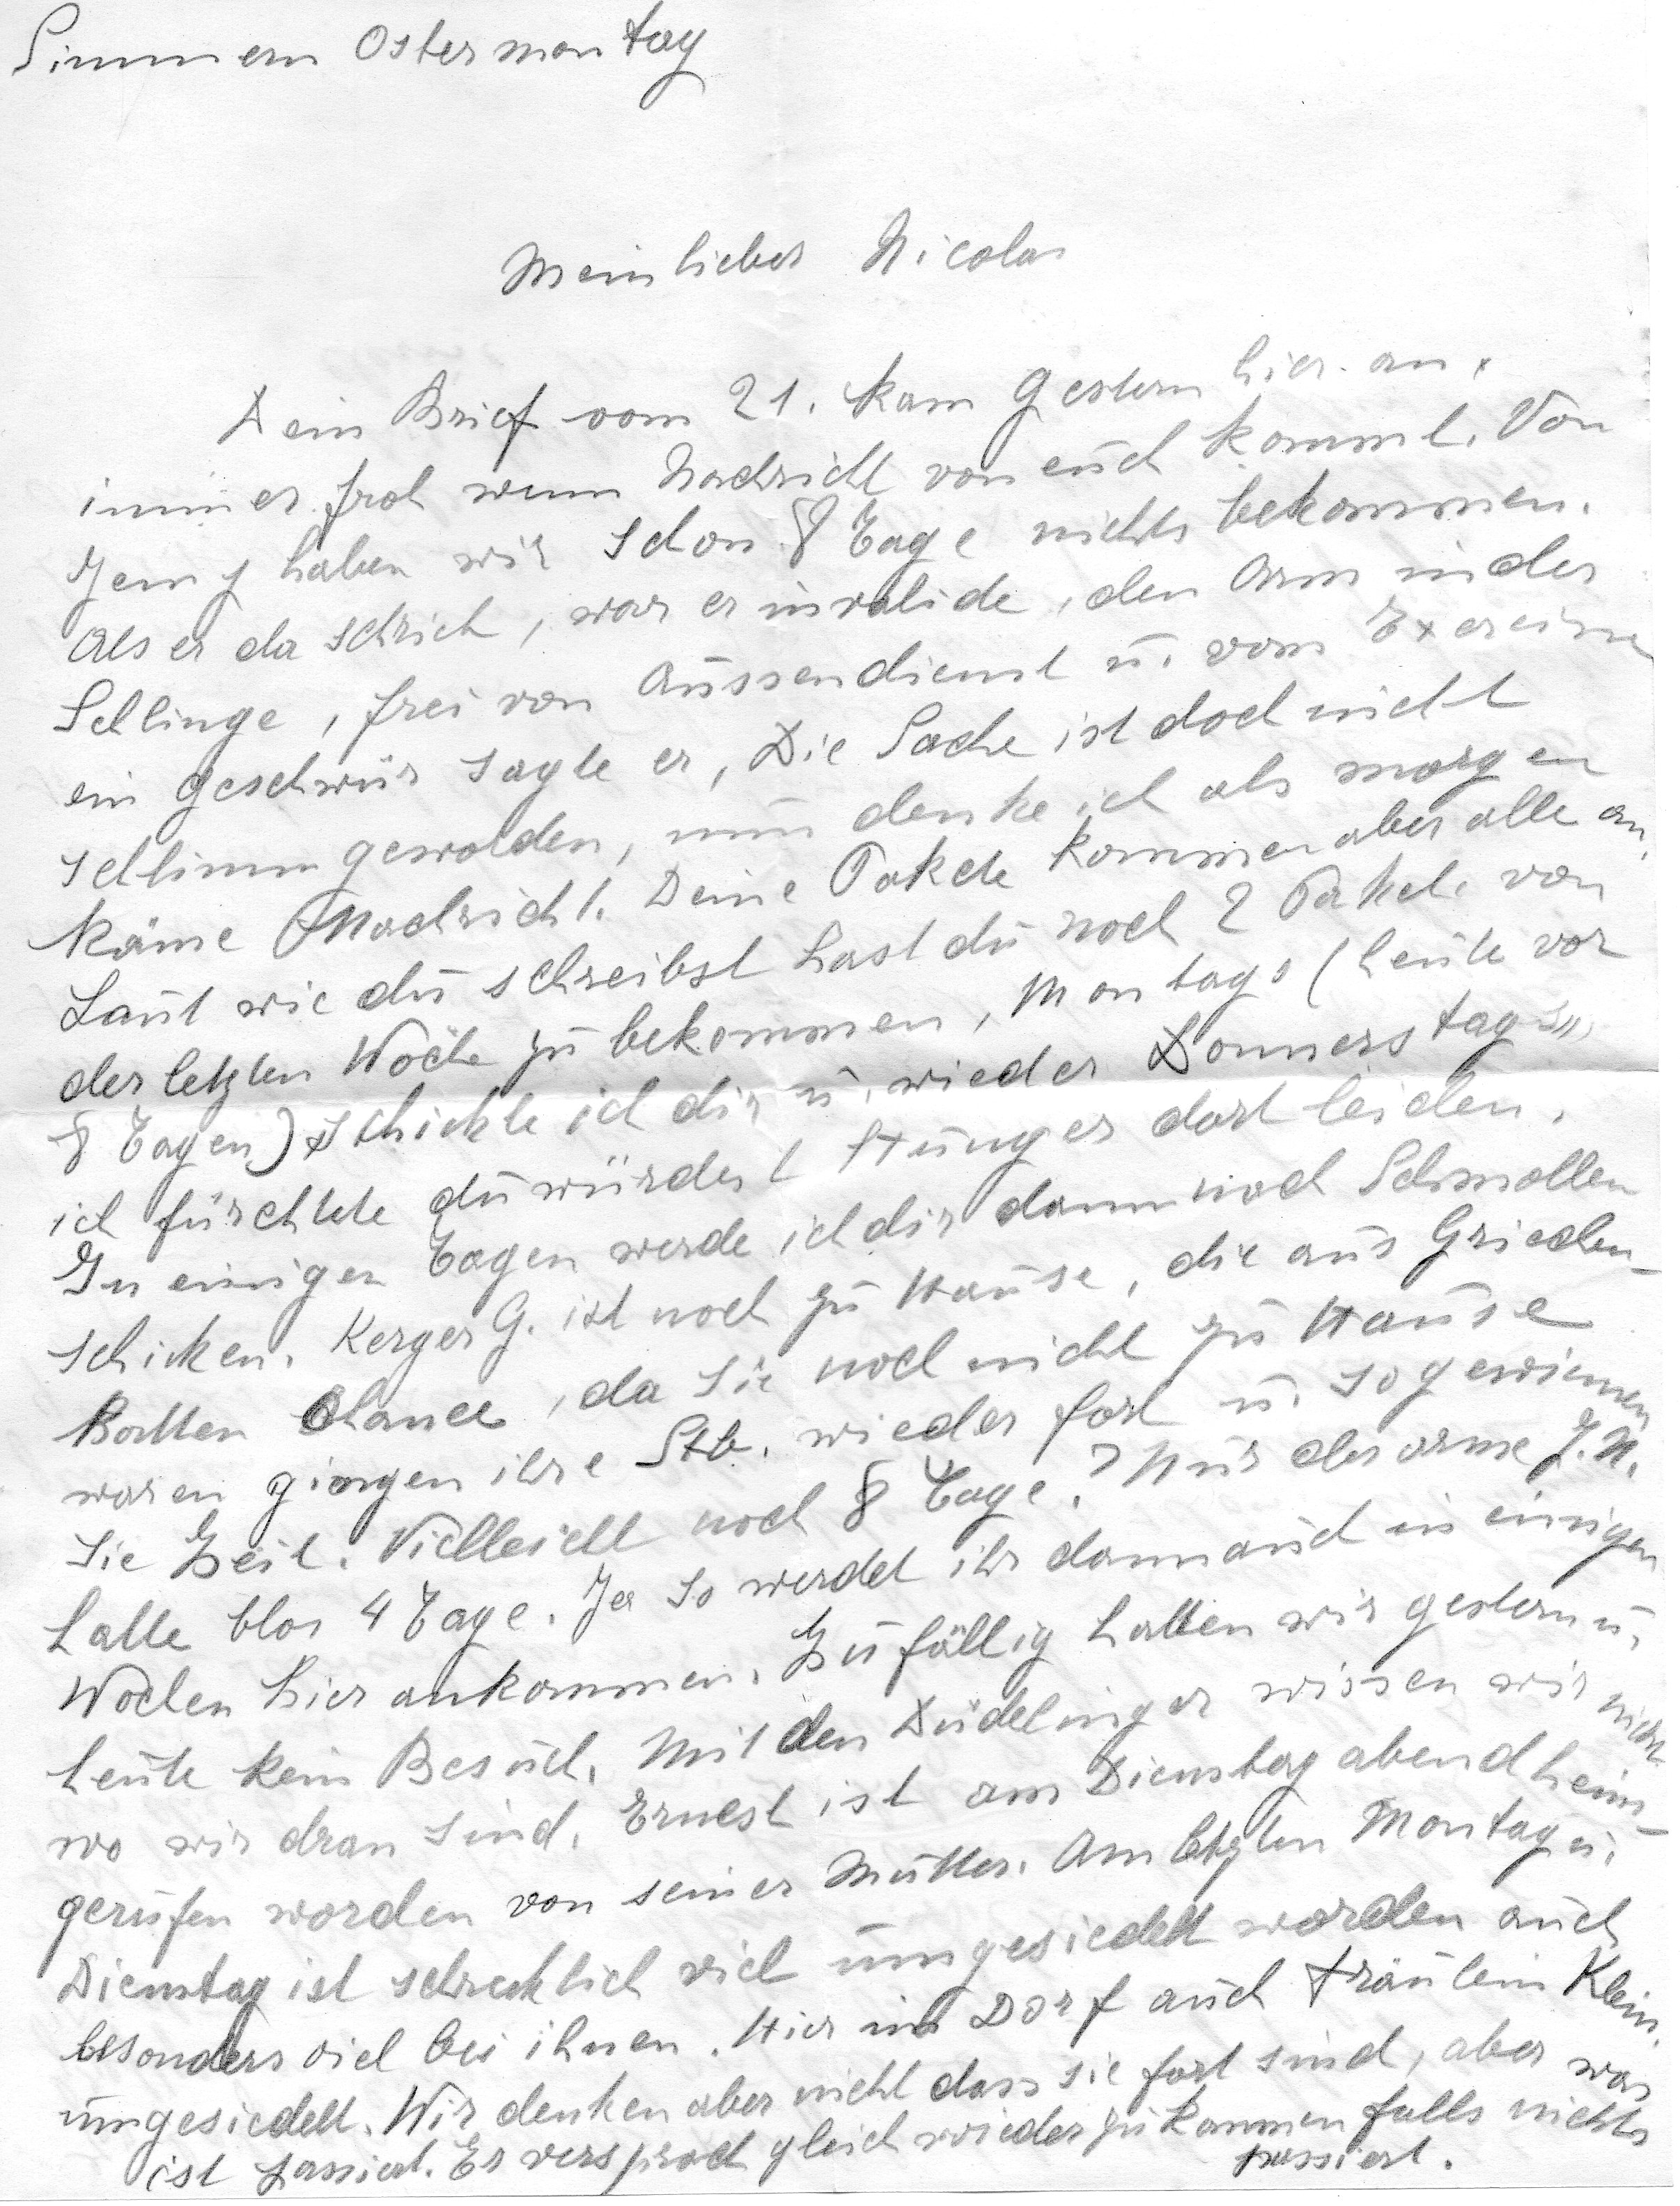 Simmern Ostermontag
Mein lieber Nicolas
Dein Brief vom 21. kam gestern hier an.
immer froh wenn Nachricht von euch kommt. Von
Jemy haben wir schon 8 Tage nichts bekommen.
Als er da schrieb, war er invalide, den Arm in der
Schlinge, frei von Aussendienst u. vom
ein Geschwür sagte er, Die Sache ist doch nicht
schlimm geworden, nun denke ich als morgen
käme Nachricht. Deine Pakete kommen aber alle an.
Laut wie du schreibst hast du noch 2 Paket. von
der letzten Woche zu bekommen, Montags (heute vor
8 Tagen) schickte ich dir u. wieder Donnerstags,,
ich fürchtete du würdest Hunger dort leiden.
In einigen Tagen werde ich dir dann noch Schmollen
schicken. Kerger G. ist noch zu Hause, die aus Griechen-
hatten Chance, da sie noch nicht zu Hause
waren gingen ihre Stb. wieder fort u. so gewinnen
sie Zeit. Vielleicht noch 8 Tage? Nur der arme J.N.
hatte blos 4 Tage. Ja so werdet ihr dann auch in einigen
Wochen hier ankommen. Zufällig hatten wir gestern u.
heute kein Besuch. Mit den Düdelinger wissen wir nicht
wo wir dran sind. Ernest ist am Dienstag abend heim-
gerufen worden von seiner Mutter. Am letzten Montag u.
Dienstag ist schrecklich viel umgesiedelt worden auch
besonders viel bei ihnen. Hier im Dorf auch Fräulein Klein.
umgesiedelt. Wir denken aber nicht dass sie fort sind, aber was
ist passiert. Er versprach gleich wieder zu kommen falls nichts
passiert.